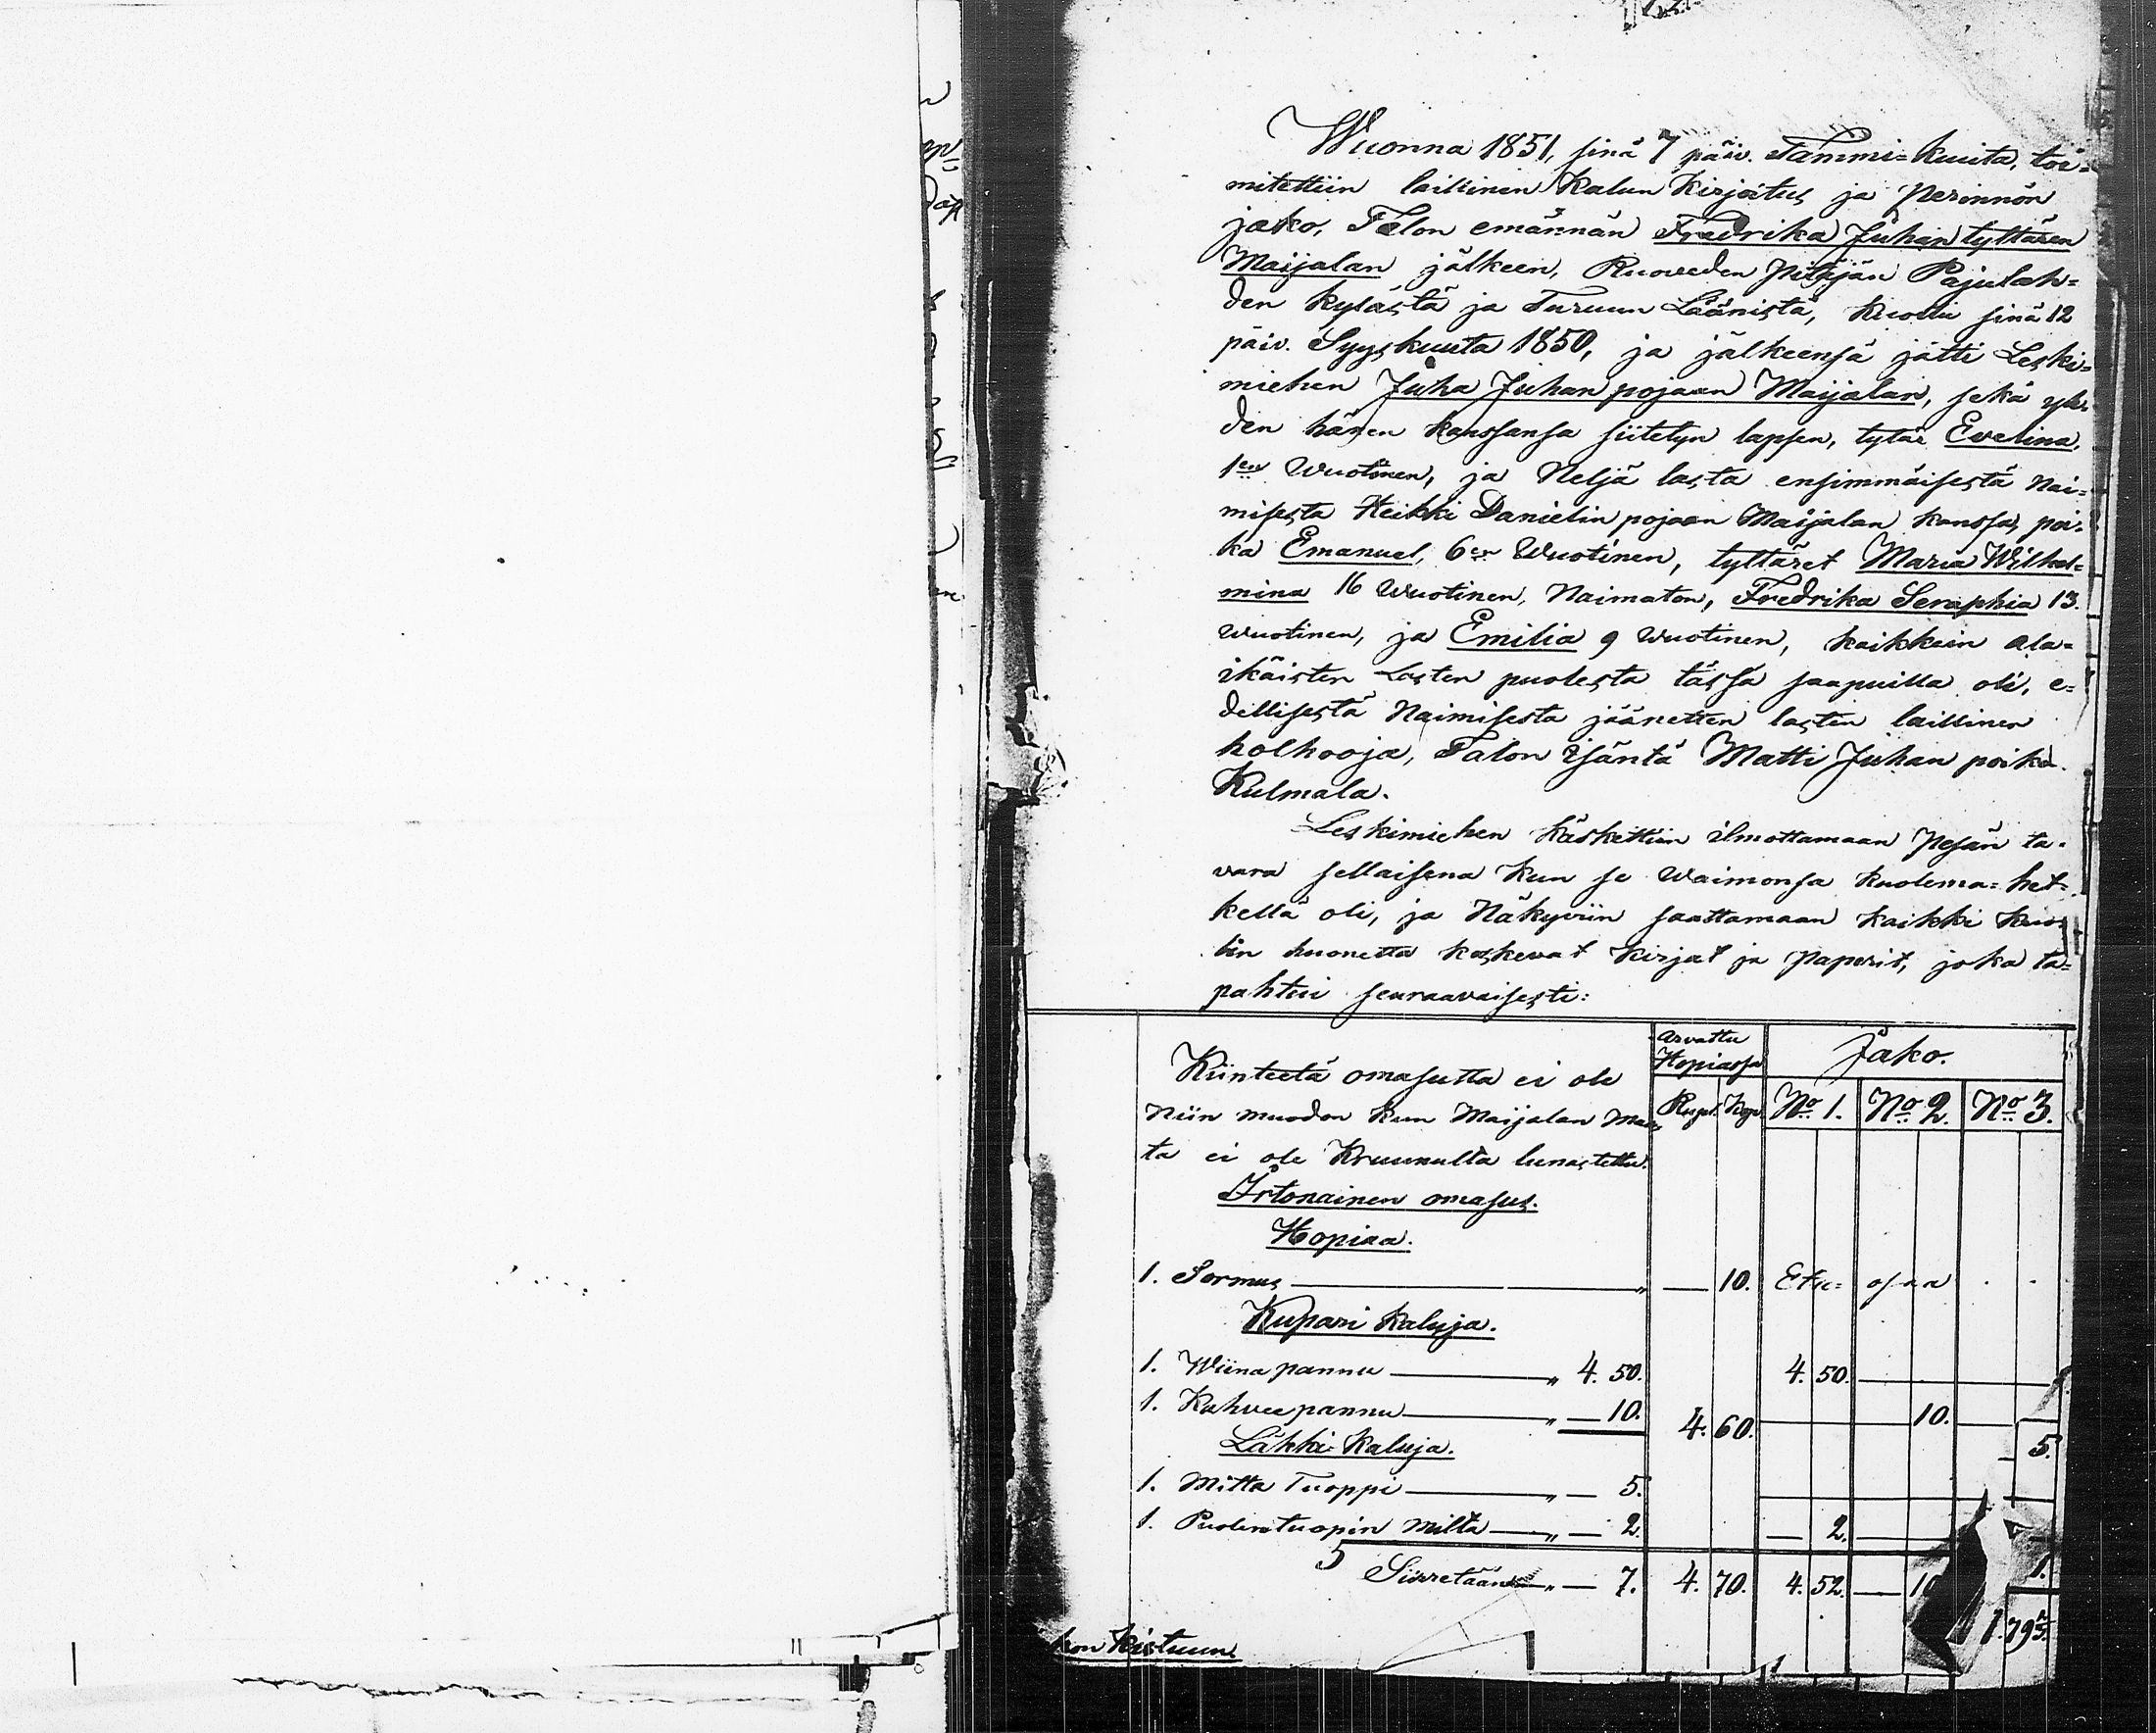 Wuonna 1851, sinä 7 päiv. Tammi=kuuta, toi=
mitettiin laillinen Kalun Kirjoitus ja Perinnön
jako, Talon emännän Fredrika Juhan tyttären
Maijalan jälkeen, Ruoveden Pitäjän Pajulah=
den kylästä ja Turuun Läänistä, kuoli sinä 12
päiv. Syyskuuta 1850, ja jälkeensä jätti Leski=
miehen Juha Juhan pojaan Maijalan, sekä yh=
den hänen kanssansa siitetyn lapsen, tytär Evelina,
1en Wuotinen, ja Neljä lasta ensimmäisestä Nai=
misesta Heikki Danielin pojaan Maijalan kanssa, poi=
ka Emanuel, 6en Wuotinen, tyttäret Maria Wilhel=
mina 16 Wuotinen, Naimaton, Fredrika Seraphia 13.
Wuotinen, ja Emilia 9 Wuotinen, kaikkein ala=
ikäisten Lasten puolesta tässä saapuilla oli, e=
dellisestä Naimisesta jäänetten lasten laillinen
holhooja, Talon Isäntä Matti Juhan poika
Kulmala.
Leskimiehen käskettiin ilmottamaan Pesän ta=
vara sellaisena kun se Waimonsa kuolema=het=
kellä oli, ja Näkyviin saattamaan kaikki kuo=
lin huonetta koskevat Kirjat ja Paperit, joka ta=
pahtui seuraavaisesti:
Arvattu
Hopiassa
Jako.
Kiinteetä omasutta ei ole
Rupl. Kop. No 1. No 2. No 3.
Niin muodon kun Maijalan Maa
ta ei ole Kruunulta lunastettu.
Irtonainen omasus.
Hopiaa.
1. Sormus " — 10. Etu= osaa
Kupari Kaluja.
1. Wiina pannu " 4. 50. 4. 50.
1. Kahvee pannu " — 10. 4. 60. 10.
Läkki Kaluja.
5.
1. Mitta Tuoppi " — 5.
1. Puolentuopin Mitta " — 2. — 2.
Siirretään " — 7. 4. 70. 4. 52. — 10 1.
1.79